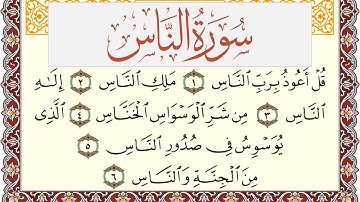 سُورَةُ النَّاسِ
قُلْ أَعُوذُ بِرَبِّ ٱلنَّاسِ ١ مَلِكِ ٱلنَّاسِ ٢ إِلَٰهِ
ٱلنَّاسِ ٣ مِن شَرِّ ٱلْوَسْوَاسِ ٱلْخَنَّاسِ ٤ ٱلَّذِى
يُوَسْوِسُ فِى صُدُورِ ٱلنَّاسِ ٥
مِنَ ٱلْجِنَّةِ وَٱلنَّاسِ ٦